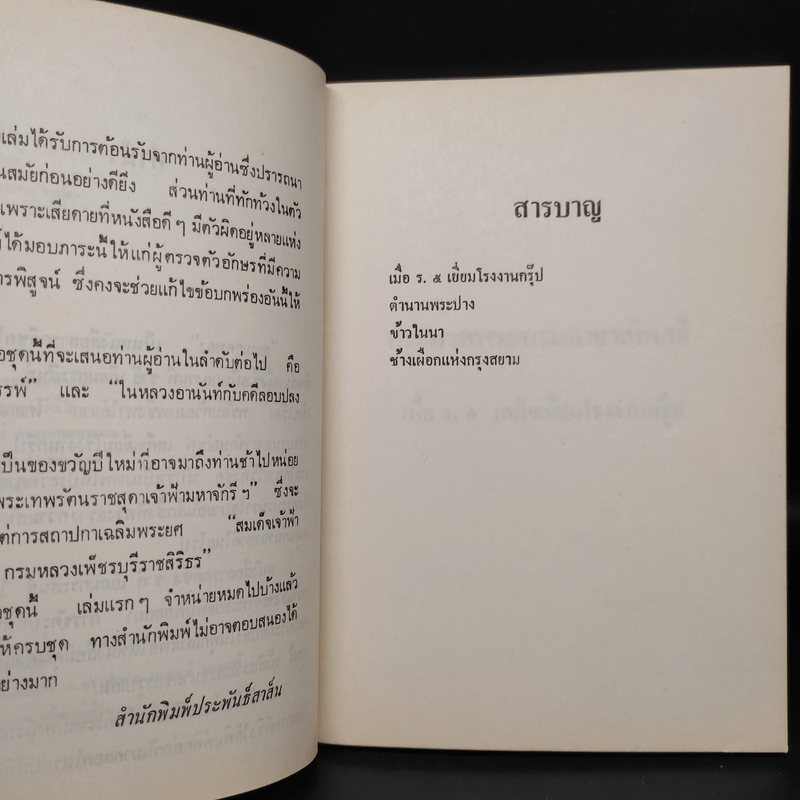 เล่มได้รับการต้อนรับจากท่านผู้อ่านซึ่งปรารถนา
นสมัยก่อนอย่างดียิ่ง ส่วนท่านที่ทักท้วงในตัว
เพราะเสียดายที่หนังสือดี ๆ มีตัวผิดอยู่หลายแห่ง
ได้มอบภาระนี้ให้แก่ผู้ตรวจตัวอักษรที่มีความ
ารพิสูจน์ ซึ่งคงจะช่วยแก้ไขข้อบกพร่องอันนี้ให้
อชุดนี้ที่จะเสนอท่านผู้อ่านในลำดับต่อไป คือ
รรพ์” และ “ในหลวงอานันท์กับคดีลอบปลง
เป็นของขวัญปีใหม่ที่อาจมาถึงท่านช้าไปหน่อย
พระเทพรัตนราชสุดาเจ้าฟ้ามหาจักรี ฯ” ซึ่งจะ
ต่การสถาปกาเฉลิมพระยศ “สมเด็จเจ้าฟ้า
กรมหลวงเพ็ชรบุรีราชสิริธร”
ชุดนี้ เล่มแรก ๆ จำหน่ายหมดไปบ้างแล้ว
ห้ครบชุด ทางสำนักพิมพ์ไม่อาจตอบสนองได้
ย่างมาก
สำนักพิมพ์ประพันธ์สาส์น
สารบาญ
เมื่อ ร. ๕ เยี่ยมโรงงานกรุ๊ป
ตำนานพระปาง
ข้าวในนา
ช้างเผือกแห่งกรุงสยาม